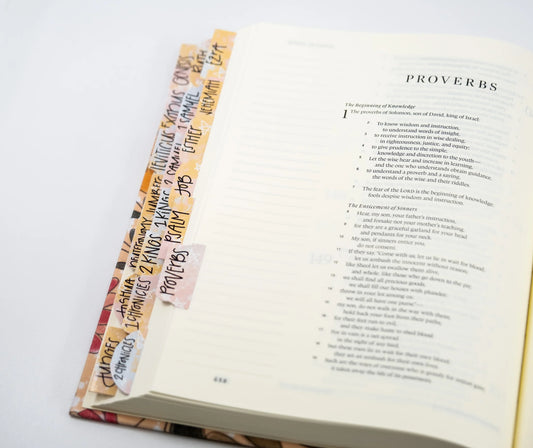 GENESIS
EXODUS
LEVITICUS
NUMBERS
JOSHUA
JUDGES
RUTH
1 SAMUEL
2 SAMUEL
1 KINGS
2 KINGS
1 CHRONICLES
2 CHRONICLES
EZRA
NEHEMIAH
ESTHER
JOB
PSALM
PROVERBS
PROVERBS
The Beginning of Knowledge
1 The proverbs of Solomon, son of David, king of Israel:
2 To know wisdom and instruction,
to understand words of insight,
3 to receive instruction in wise dealing,
in righteousness, justice, and equity;
4 to give prudence to the simple,
knowledge and discretion to the youth—
5 Let the wise hear and increase in learning,
and the one who understands obtain guidance,
6 to understand a proverb and a saying,
the words of the wise and their riddles.
7 The fear of the LORD is the beginning of knowledge;
fools despise wisdom and instruction.
The Enticement of Sinners
8 Hear, my son, your father's instruction,
and forsake not your mother's teaching,
9 for they are a graceful garland for your head
and pendants for your neck.
10 My son, if sinners entice you,
do not consent.
11 If they say, "Come with us, let us lie in wait for blood;
let us ambush the innocent without reason;
12 like Sheol let us swallow them alive,
and whole, like those who go down to the pit;
13 we shall find all precious goods,
we shall fill our houses with plunder;
14 throw in your lot among us;
we will all have one purse"—
15 my son, do not walk in the way with them;
hold back your foot from their paths,
16 for their feet run to evil,
and they make haste to shed blood.
17 For in vain is a net spread
in the sight of any bird,
18 but these men lie in wait for their own blood;
they set an ambush for their own lives.
19 Such are the ways of everyone who is greedy for unjust gain;
it takes away the life of its possessors.